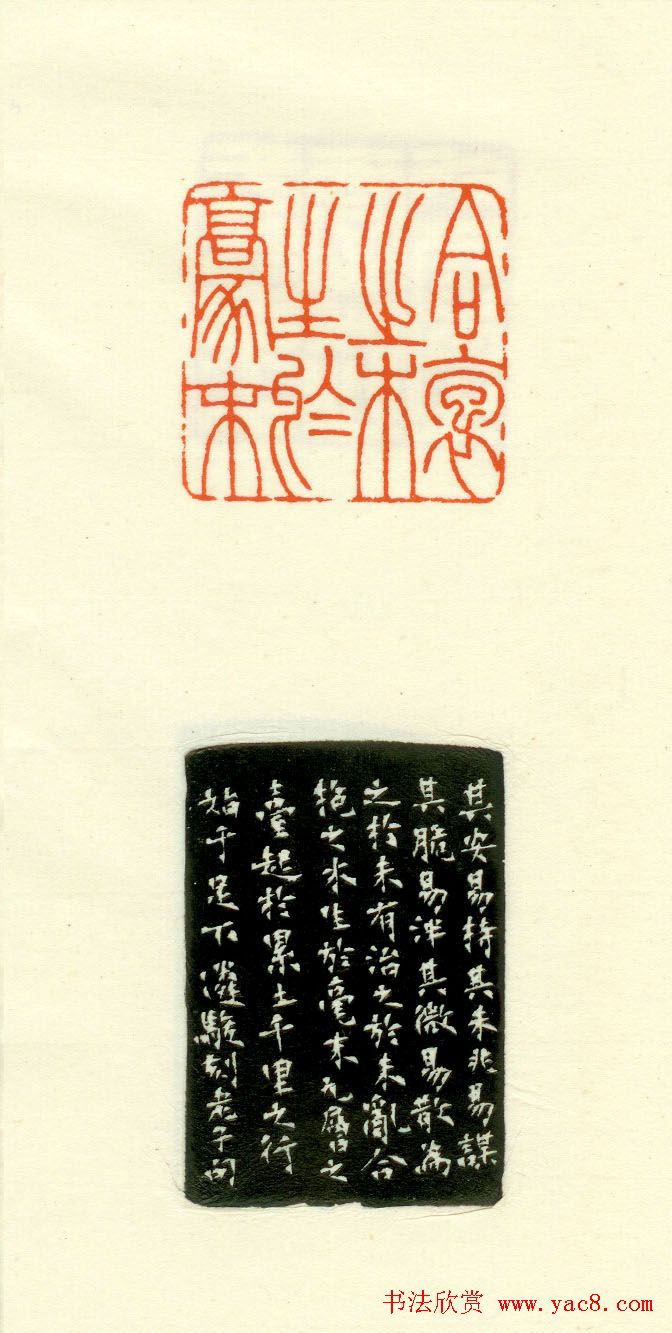 合褱
之木
生於
豪末
其安易持其未兆易謀
其脆易泮其微易散為
之於未有治之於未亂合
抱之木生於毫末九層之
臺起於累土千里之行
始于足下駿刻老子句
书法欣赏 www.yac8.com